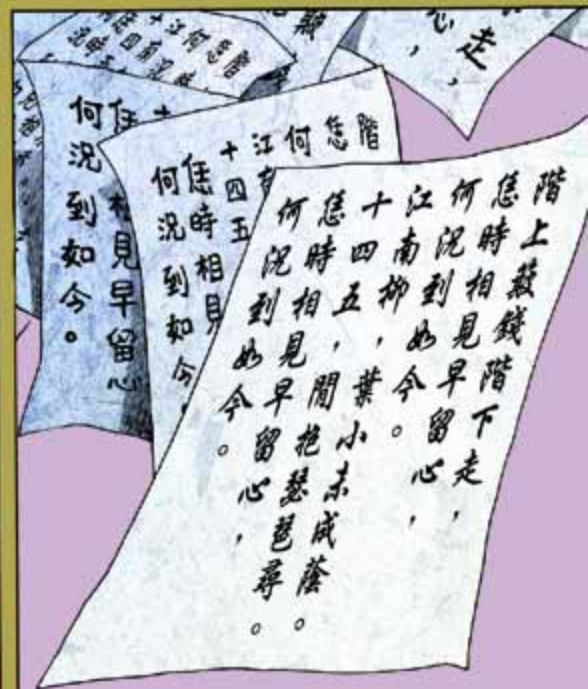 階上簸錢階下走,
恁時相見早留心,
何況到如今。
江南柳,葉小未成蔭。
十四五,閒抱瑟琶尋。
恁時相見早留心,
何況到如今。
階
恁
何
江
十四五
恁時相見
何況到如今。
相見早留心
何況到如今。
走,
心,